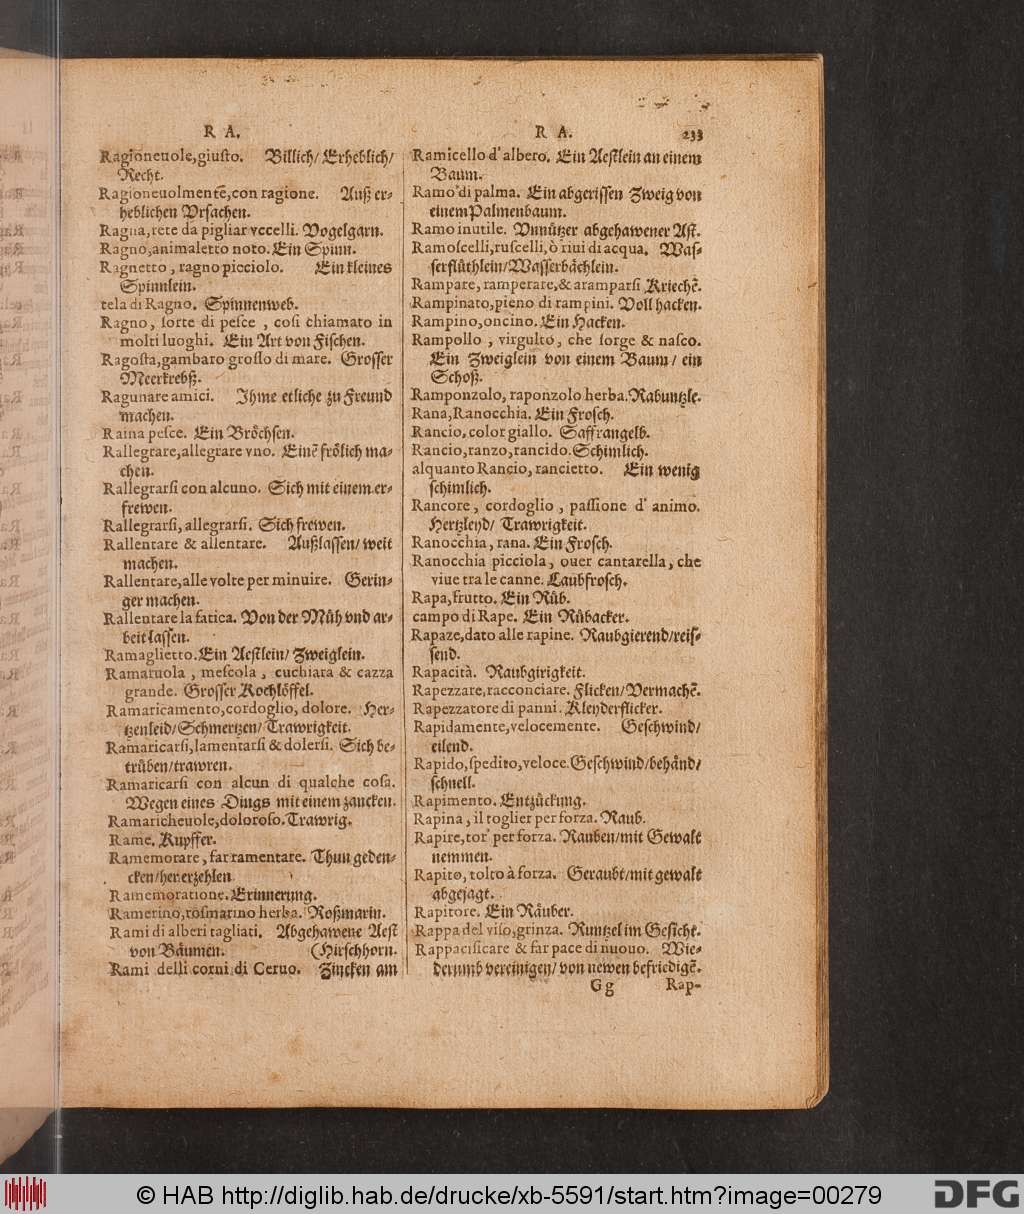 R A.
Ragioneuole, giusto. Billich/ Erheblich/
Recht.
Ragioneuolmentē, con ragione. Auß er-
heblichen Vrsachen.
Ragna, rete da pigliar vccelli. Vogelgarn.
Ragno, animaletto noto. Ein Spinn.
Ragnetto, ragno picciolo. Ein kleines
Spinnlein.
tela di Ragno. Spinnenweb.
Ragno, sorte di pesce, cosi chiamato in
molti luoghi. Ein Art von Fischen.
Ragosta, gambaro grosso di mare. Grosser
Meerkrebß.
Ragunare amici. Ihme etliche zu Freund
machen.
Raina pesce. Ein Bröchsen.
Rallegrare, allegrare vno. Einē frölich ma-
chen.
Rallegrarsi con alcuno. Sich mit einem er-
frewen.
Rallegrarsi, allegrarsi. Sich frewen.
Rallentare & allentare. Außlassen/ weit
machen.
Rallentare, alle volte per minuire. Gerin-
ger machen.
Rallentare la fatica. Von der Müh vnd ar-
beit lassen.
Ramaglietto. Ein Aestlein/ Zweiglein.
Ramaruola, mescola, cuchiara & cazza
grande. Grosser Kochlöffel.
Ramaricamento, cordoglio, dolore. Her-
tzenleid/ Schmertzen/ Trawrigkeit.
Ramaricarsi, lamentarsi & dolersi. Sich be-
trüben/ trawren.
Ramaricarsi con alcun di qualche cosa.
Wegen eines Dings mit einem zancken.
Ramaricheuole, doloroso. Trawrig.
Rame. Kupffer.
Ramemorare, far ramentare. Thun geden-
cken/ her erzehlen.
Ramemoratione. Erinnerung.
Ramerino, rosmarino herba. Roßmarin.
Rami di alberi tagliati. Abgehawene Aest
von Bäumen. (Hirschhorn.
Rami delli corni di Ceruo. Zincken am
R A. 233
Ramicello d'albero. Ein Aestlein an einem
Baum.
Ramo di palma. Ein abgerissen Zweig von
einem Palmenbaum.
Ramo inutile. Vnnützer abgehawener Ast.
Ramoscelli, ruscelli, ò riui di acqua. Was-
serflüthlein/ Wasserbächlein.
Rampare, ramperare, & aramparsi Kriechē.
Rampinato, pieno di rampini. Voll hacken.
Rampino, oncino. Ein Hacken.
Rampollo, virgulto, che sorge & nasco.
Ein Zweiglein von einem Baum/ ein
Schoß.
Ramponzolo, raponzolo herba. Rabuntzle.
Rana, Ranocchia. Ein Frosch.
Rancio, color giallo. Saffrangelb.
Rancio, ranzo, rancido. Schimlich.
alquanto Rancio, rancietto. Ein wenig
schimlich.
Rancore, cordoglio, passione d'animo.
Hertzleyd/ Trawrigkeit.
Ranocchia, rana. Ein Frosch.
Ranocchia picciola, ouer cantarella, che
viue tra le canne. Laubfrosch.
Rapa, frutto. Ein Rüb.
campo di Rape. Ein Rübacker.
Rapaze, dato alle rapine. Raubgierend/ reis-
send.
Rapacità. Raubgirigkeit.
Rapezzare, racconciare. Flicken/ Vermachē.
Rapezzatore di panni. Kleyderflicker.
Rapidamente, velocemente. Geschwind/
eilend.
Rapido, spedito, veloce. Geschwind/ behänd/
schnell.
Rapimento. Entzückung.
Rapina, il toglier per forza. Raub.
Rapire, tor' per forza. Rauben/ mit Gewalt
nemmen.
Rapito, tolto à forza. Geraubt/ mit gewalt
abgejagt.
Rapitore. Ein Räuber.
Rappa del viso, grinza. Runtzel im Gesicht.
Rappacificare & far pace di nuouo. Wie-
derumb vereinigen/ von newen befriedigē.
G g Rap-
© HAB http://diglib.hab.de/drucke/xb-5591/start.htm?image=00279
DFG